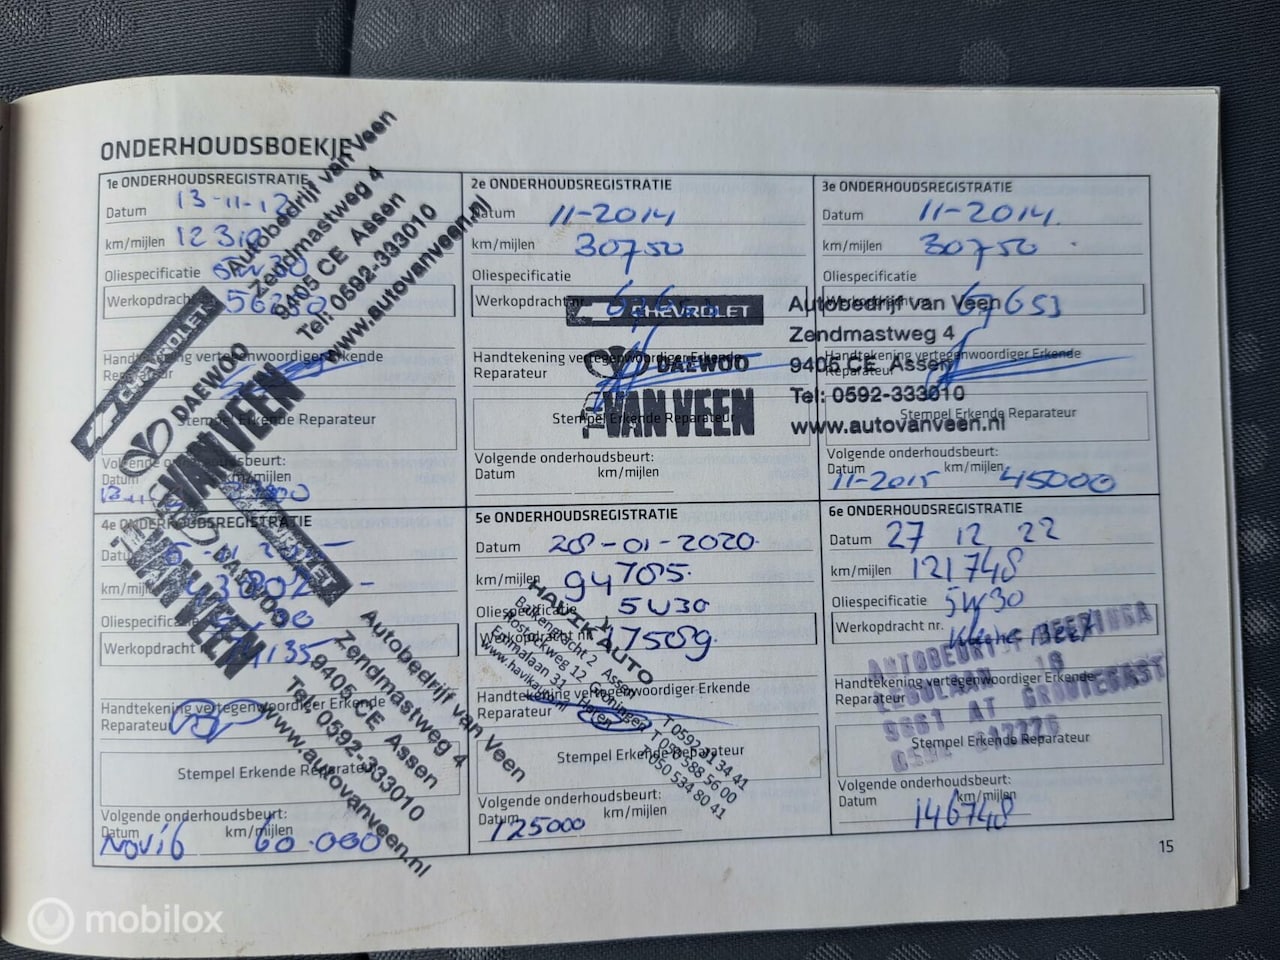 ONDERHOUDSBOEKJE
1e ONDERHOUDSREGISTRATIE
Datum 13-11-12
km/mijlen
Oliespecificatie 5W30
Werkopdracht
Handtekening vertegenwoordiger Erkende
Reparateur
Stempel Erkende Reparateur
Volgende onderhoudsbeurt:
Datum km/mijlen
Autobedrijf van Veen
Zendmastweg 4
9405 CE Assen
Tel: 0592-333010
www.autovanveen.nl
CHEVROLET
DAEWOO
VAN VEEN
2e ONDERHOUDSREGISTRATIE
Datum 11-2014
km/mijlen 30750
Oliespecificatie
Werkopdracht nr.
Handtekening vertegenwoordiger Erkende
Reparateur
Stempel Erkende Reparateur
Volgende onderhoudsbeurt:
Datum km/mijlen
CHEVROLET
DAEWOO
VAN VEEN
3e ONDERHOUDSREGISTRATIE
Datum 11-2014
km/mijlen 30750
Oliespecificatie
Werkopdracht
Handtekening vertegenwoordiger Erkende
Reparateur
Stempel Erkende Reparateur
Volgende onderhoudsbeurt:
Datum km/mijlen
11-2015 45000
Autobedrijf van Veen
Zendmastweg 4
9405 CE Assen
Tel: 0592-333010
www.autovanveen.nl
4e ONDERHOUDSREGISTRATIE
Datum
km/mijlen
Oliespecificatie
Werkopdracht
Handtekening vertegenwoordiger Erkende
Reparateur
Stempel Erkende Reparateur
Volgende onderhoudsbeurt:
Datum km/mijlen
Nov 16 60.000
DAEWOO
VAN VEEN
Autobedrijf van Veen
Zendmastweg 4
9405 CE Assen
Tel: 0592-333010
www.autovanveen.nl
5e ONDERHOUDSREGISTRATIE
Datum 28-01-2020
km/mijlen 94785
Oliespecificatie 5W30
Werkopdracht nr. 17509
Handtekening vertegenwoordiger Erkende
Reparateur
Stempel Erkende Reparateur
Volgende onderhoudsbeurt:
Datum km/mijlen
125000
HAVIK AUTO
Balkengracht 2 Assen
Rostockweg 12 Groningen
Emmalaan 31 Haren
T 050 534 80 41
6e ONDERHOUDSREGISTRATIE
Datum 27 12 22
km/mijlen 121748
Oliespecificatie 5W30
Werkopdracht nr. Kleine Beurt
Handtekening vertegenwoordiger Erkende
Reparateur
Stempel Erkende Reparateur
Volgende onderhoudsbeurt:
Datum km/mijlen
146748
AUTOBEDRIJF
AT GROOTEGAST
15
mobilox